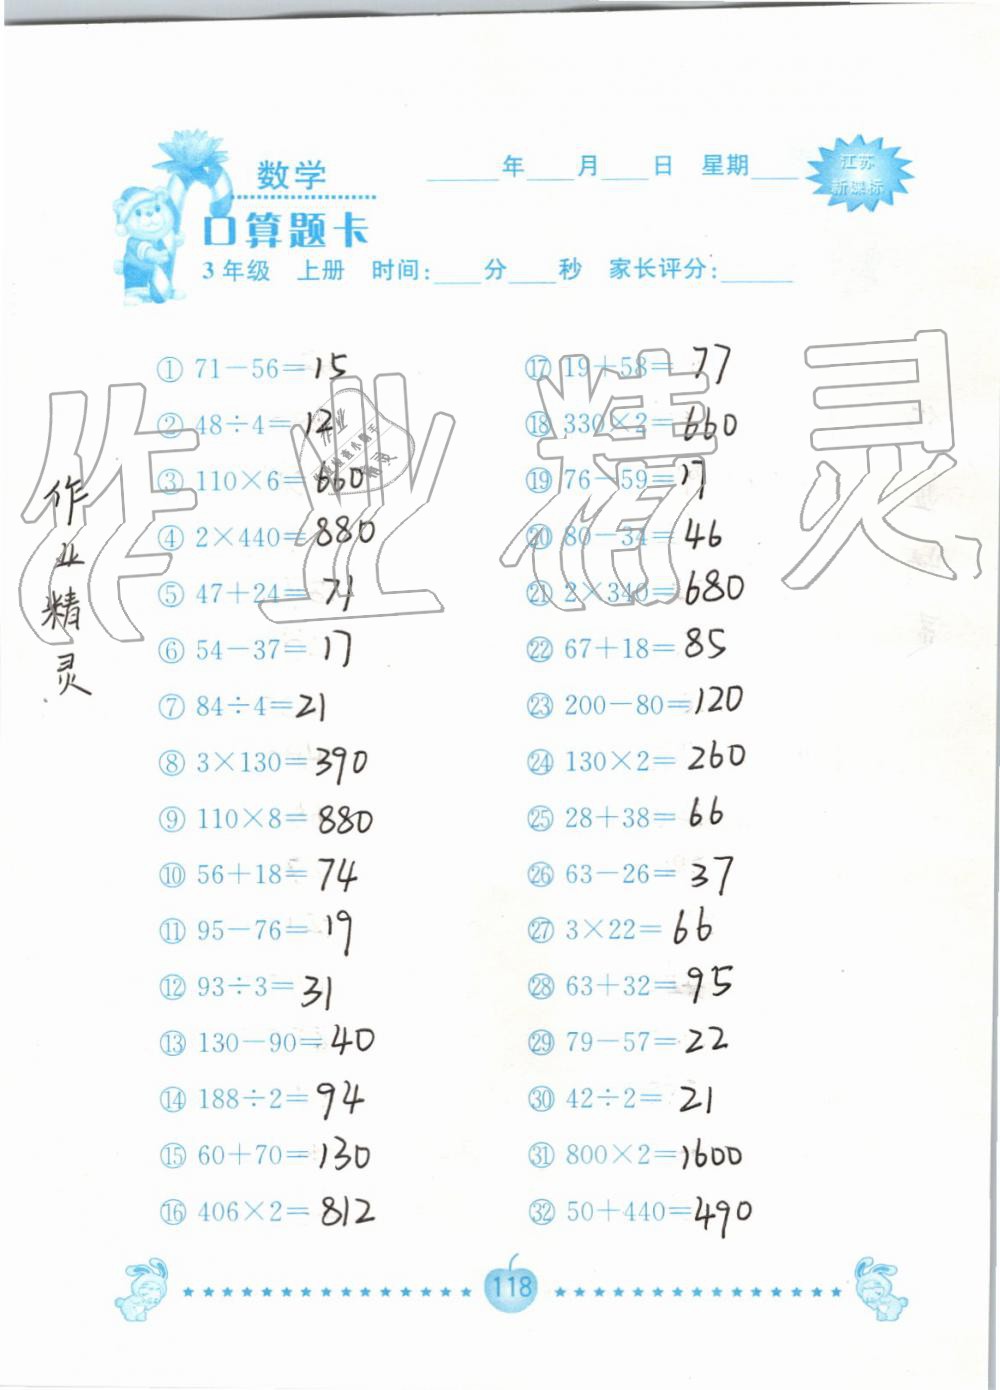 数学
口算题卡
年 月 日 星期
江苏
新课标
3年级 上册 时间: 分 秒 家长评分:
① 71-56=15
② 48÷4=12
③ 110×6=660
④ 2×440=880
⑤ 47+24=71
⑥ 54-37=17
⑦ 84÷4=21
⑧ 3×130=390
⑨ 110×8=880
⑩ 56+18=74
⑪ 95-76=19
⑫ 93÷3=31
⑬ 130-90=40
⑭ 188÷2=94
⑮ 60+70=130
⑯ 406×2=812
⑰ 19+58=77
⑱ 330×2=660
⑲ 76-59=17
⑳ 80-34=46
㉑ 2×340=680
㉒ 67+18=85
㉓ 200-80=120
㉔ 130×2=260
㉕ 28+38=66
㉖ 63-26=37
㉗ 3×22=66
㉘ 63+32=95
㉙ 79-57=22
㉚ 42÷2=21
㉛ 800×2=1600
㉜ 50+440=490
作业精灵
作业精灵
作业
精灵
118